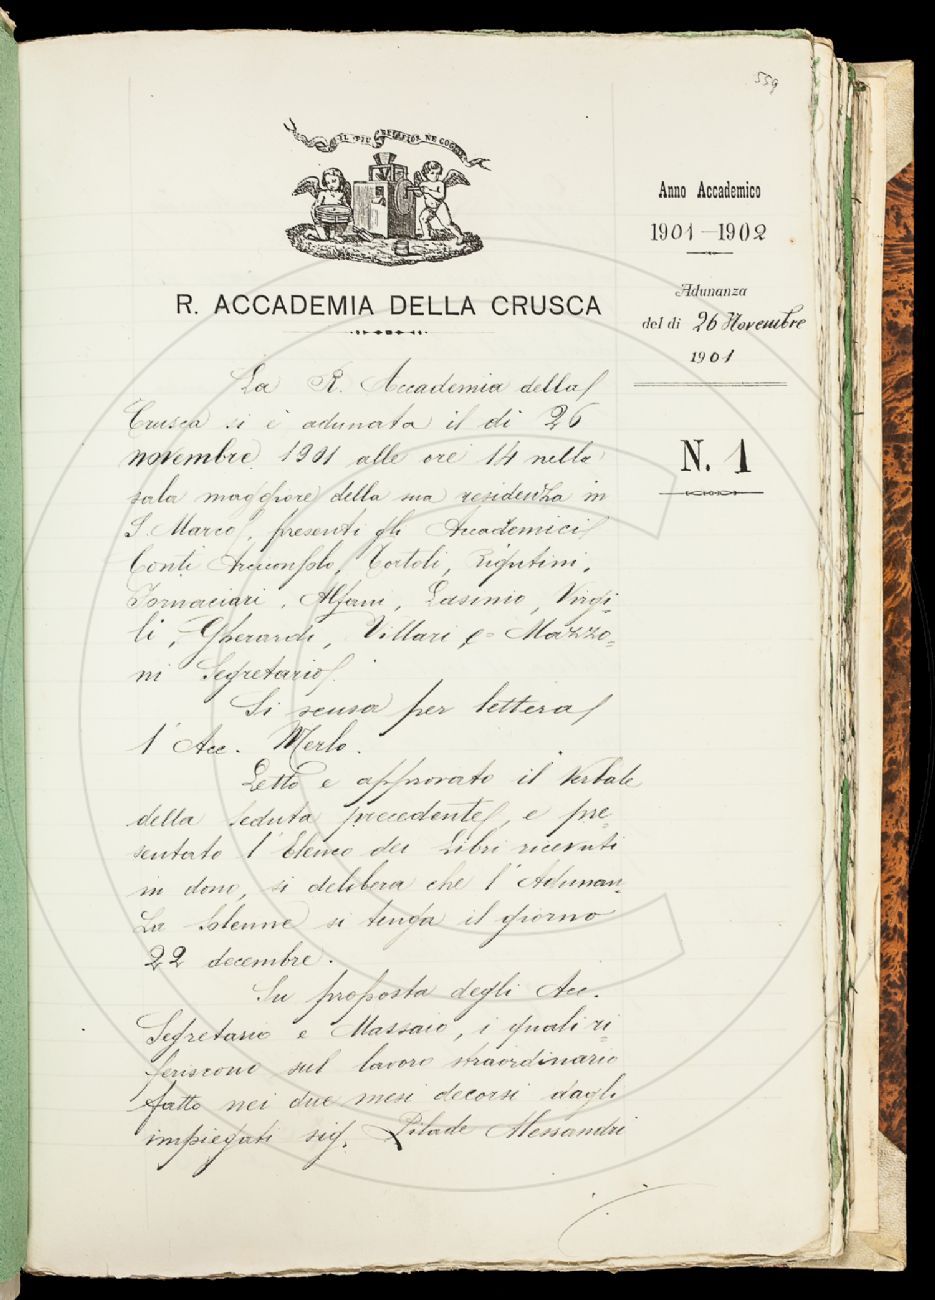 559
IL PIÙ BEL FIOR NE COGLIE
R. ACCADEMIA DELLA CRUSCA
Anno Accademico
1901-1902
Adunanza
del dì 26 Novembre
1901
N. 1
La R. Accademia della
Crusca si è adunata il dì 26
novembre 1901 alle ore 14 nella
sala maggiore della sua residenza in
S. Marco, presenti gli Accademici
Conti Arciconsolo, Tortoli, Rigutini,
Fornaciari, Alfani, Lasinio, Virgi-
li, Gherardi, Villari e Mazzo=
ni Segretario.
Si scusa per lettera
l'Acc. Merlo.
Letto e approvato il Verbale
della seduta precedente, e pre=
sentato l'Elenco dei Libri ricevuti
in dono, si delibera che l'Adunan=
za Solenne si tenga il giorno
22 decembre.
Su proposta degli Acc.
Segretario e Massaio, i quali ri=
feriscono sul lavoro straordinario
fatto nei due mesi decorsi dagli
impiegati sig. Pilade Alessandri